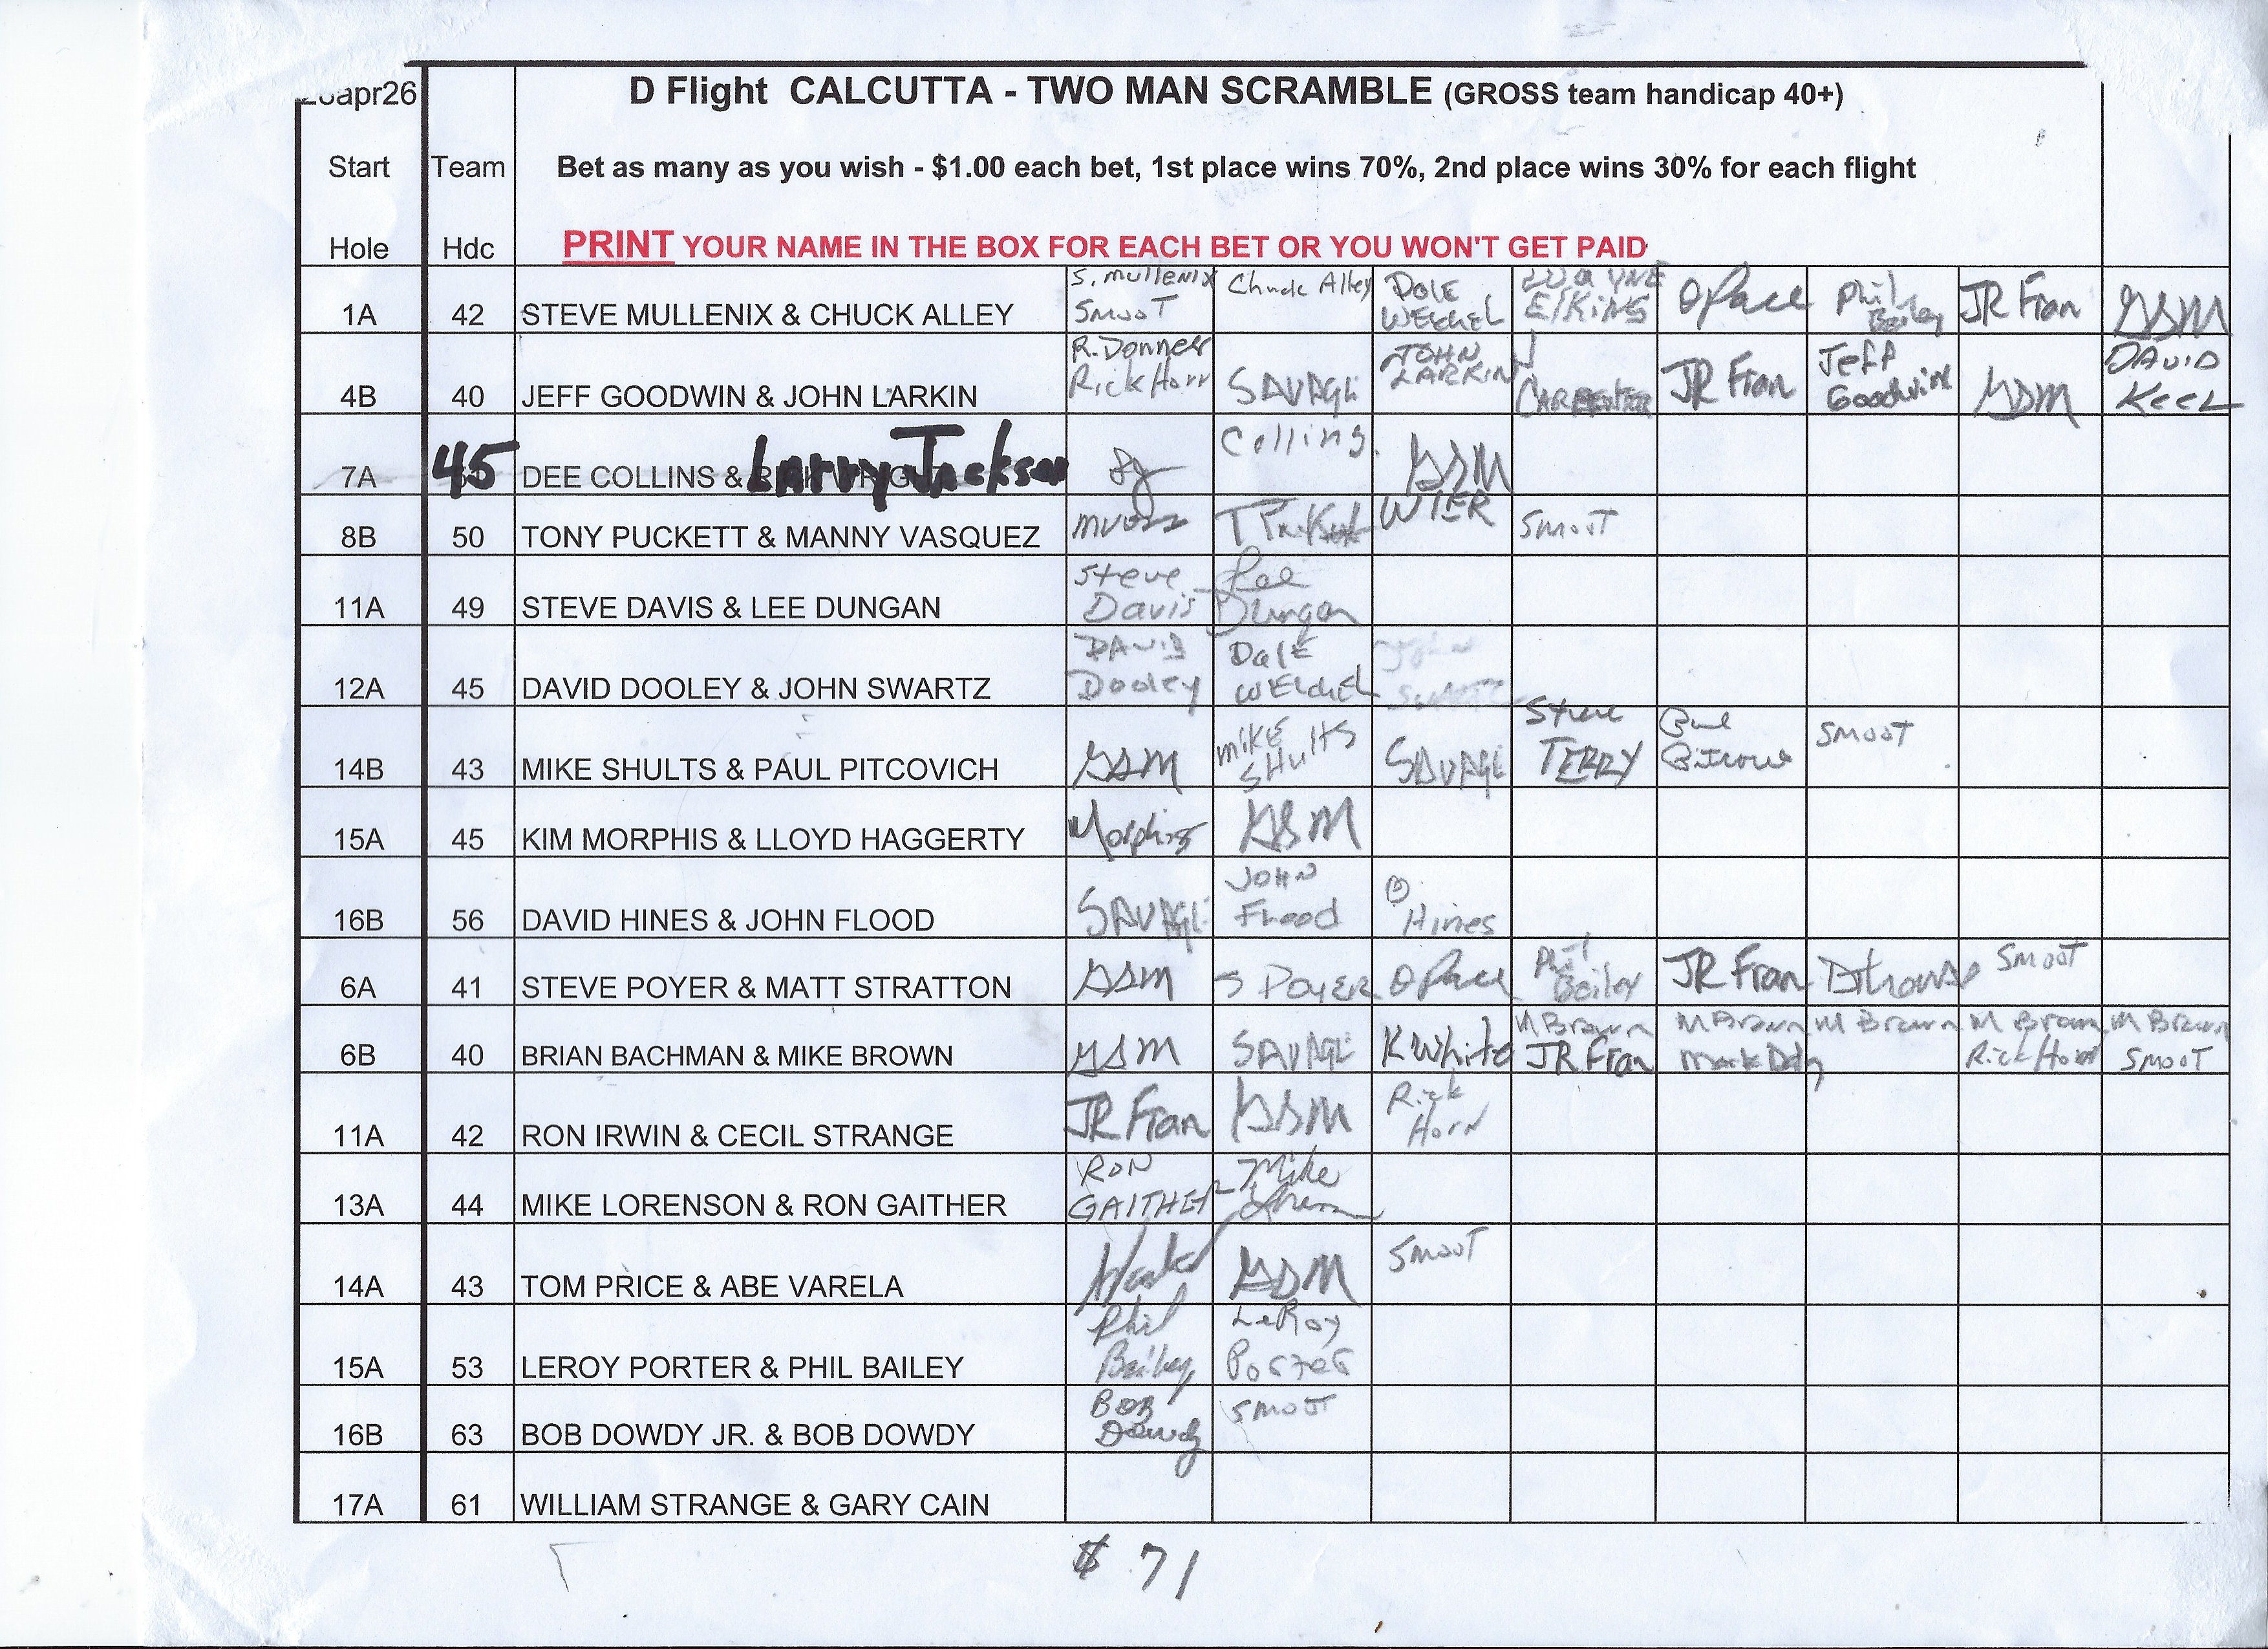 apr26 D Flight CALCUTTA - TWO MAN SCRAMBLE (GROSS team handicap 40+)
Start Team Bet as many as you wish - $1.00 each bet, 1st place wins 70%, 2nd place wins 30% for each flight
Hole Hdc PRINT YOUR NAME IN THE BOX FOR EACH BET OR YOU WON'T GET PAID
S. Mullenix Chuck Alley DOLE WAYNE Phil JR Fran
1A 42 STEVE MULLENIX & CHUCK ALLEY SMOOT WELCHEL ElKiNS O Pace Bailey GSM
R. Donner JOHN Jeff DAVID
4B 40 JEFF GOODWIN & JOHN LARKIN Rick Horr SAVAGE LARKIN CARPENTER JR Fran Goodwin GSM KEEL
Collins
7A 45 DEE COLLINS & Larry Jackson GSM
8B 50 TONY PUCKETT & MANNY VASQUEZ WIER SMOOT
Steve Lee
11A 49 STEVE DAVIS & LEE DUNGAN Davis Dungan
DAVID DalE
12A 45 DAVID DOOLEY & JOHN SWARTZ Dooley WELCHEL
MIKE Steve SMOOT
14B 43 MIKE SHULTS & PAUL PITCOVICH GSM SHultS SAVAGE TERRY
15A 45 KIM MORPHIS & LLOYD HAGGERTY Morphis GSM
JOHN
16B 56 DAVID HINES & JOHN FLOOD SAVAGE Flood Hines
Phil SMOOT
6A 41 STEVE POYER & MATT STRATTON GSM S POYER O Pace Bailey JR Fran
M Brown M Brown M Brown M Brown M Brown
6B 40 BRIAN BACHMAN & MIKE BROWN GSM SAVAGE K White JR Fran Rick Horr SMOOT
Rick
11A 42 RON IRWIN & CECIL STRANGE JR Fran GSM HorN
RON Mike
13A 44 MIKE LORENSON & RON GAITHER GAITHER
SMOOT
14A 43 TOM PRICE & ABE VARELA GSM
Phil LeRoy
15A 53 LEROY PORTER & PHIL BAILEY Bailey Porter
BOB SMOOT
16B 63 BOB DOWDY JR. & BOB DOWDY Dowdy
17A 61 WILLIAM STRANGE & GARY CAIN
$ 71